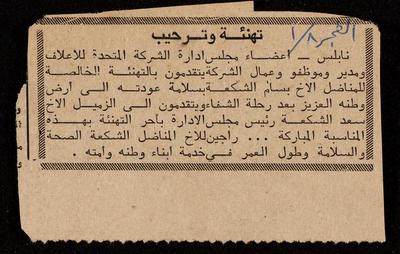 الفجر ١/٨
تهنئة وترحيب
نابلس ــ اعضاء مجلس ادارة الشركة المتحدة للاعلاف
ومدير وموظفو وعمال الشركة يتقدمون بالتهنئة الخالصة
للمناضل الاخ بسام الشكعة بسلامة عودته الى ارض
وطنه العزيز بعد رحلة الشفاء ويتقدمون الى الزميل الاخ
سعد الشكعة رئيس مجلس الادارة باحر التهنئة بهذه
المناسبة المباركة ... راجين للاخ المناضل الشكعة الصحة
والسلامة وطول العمر في خدمة ابناء وطنه وامته .